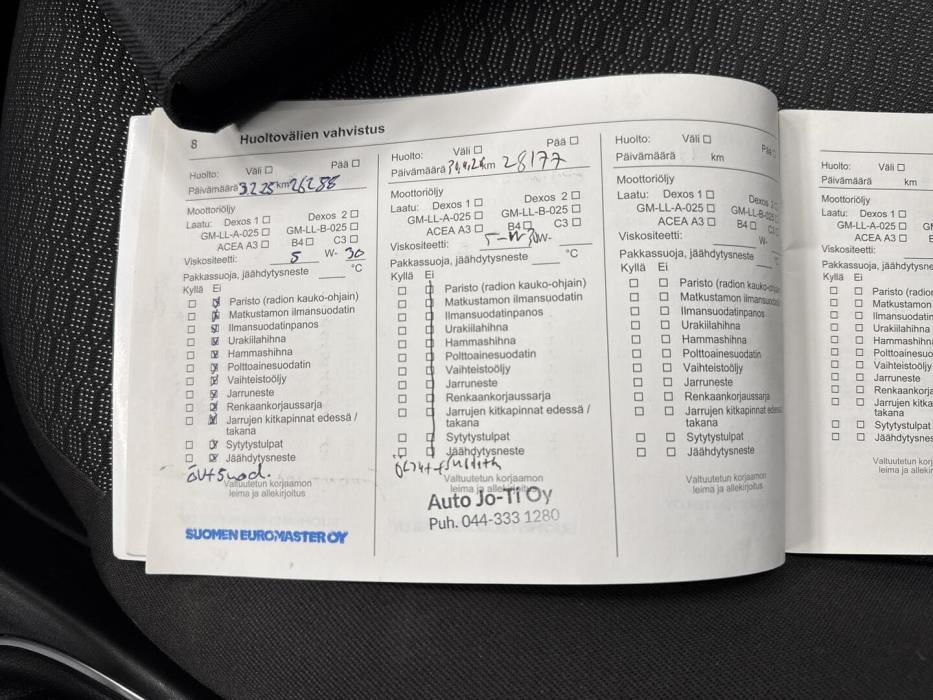 8 Huoltovälien vahvistus
Huolto: Väli ☐ Pää ☐
Päivämäärä 3.2.25 km 26288
Moottoriöljy
Laatu: Dexos 1 ☐ Dexos 2 ☐
GM-LL-A-025 ☐ GM-LL-B-025 ☐
ACEA A3 ☐ B4 ☐ C3 ☐
Viskositeetti: 5 W- 30
Pakkassuoja, jäähdytysneste ____ °C
Kyllä Ei
Paristo (radion kauko-ohjain)
Matkustamon ilmansuodatin
Ilmansuodatinpanos
Urakiilahihna
Hammashihna
Polttoainesuodatin
Vaihteistoöljy
Jarruneste
Renkaankorjaussarja
Jarrujen kitkapinnat edessä /
takana
Sytytystulpat
Jäähdytysneste
öv+suod.
Valtuutetun korjaamon
leima ja allekirjoitus
SUOMEN EUROMASTER OY
Huolto: Väli ☐ Pää ☐
Päivämäärä km 28177
Moottoriöljy
Laatu: Dexos 1 ☐ Dexos 2 ☐
GM-LL-A-025 ☐ GM-LL-B-025 ☐
ACEA A3 ☐ B4 ☐ C3 ☐
Viskositeetti: 5-W30 W-
Pakkassuoja, jäähdytysneste ____ °C
Kyllä Ei
Paristo (radion kauko-ohjain)
Matkustamon ilmansuodatin
Ilmansuodatinpanos
Urakiilahihna
Hammashihna
Polttoainesuodatin
Vaihteistoöljy
Jarruneste
Renkaankorjaussarja
Jarrujen kitkapinnat edessä /
takana
Sytytystulpat
Jäähdytysneste
Valtuutetun korjaamon
leima ja allekirjoitus
Auto Jo-Ti Oy
Puh. 044-333 1280
Huolto: Väli ☐ Pää ☐
Päivämäärä km
Moottoriöljy
Laatu: Dexos 1 ☐ Dexos 2 ☐
GM-LL-A-025 ☐ GM-LL-B-025 ☐
ACEA A3 ☐ B4 ☐ C3 ☐
Viskositeetti: ____ W-
Pakkassuoja, jäähdytysneste ____ °C
Kyllä Ei
Paristo (radion kauko-ohjain)
Matkustamon ilmansuodatin
Ilmansuodatinpanos
Urakiilahihna
Hammashihna
Polttoainesuodatin
Vaihteistoöljy
Jarruneste
Renkaankorjaussarja
Jarrujen kitkapinnat edessä /
takana
Sytytystulpat
Jäähdytysneste
Valtuutetun korjaamon
leima ja allekirjoitus
Huolto: Väli ☐
Päivämäärä km
Moottoriöljy
Laatu: Dexos 1 ☐
GM-LL-A-025 ☐
ACEA A3 ☐
Viskositeetti:
Pakkassuoja, jäähdytysne
Kyllä Ei
Paristo (radion
Matkustamon
Ilmansuodatin
Urakiilahihna
Hammashihn
Polttoainesuo
Vaihteistoöljy
Jarruneste
Renkaankorja
Jarrujen kitka
takana
Sytytystulpat
Jäähdytysnes
Valtuutetun korj
leima ja allekir